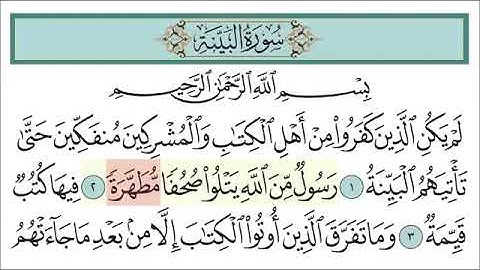 سُورَةُ الْبَيِّنَةِ
بِسْمِ اللَّهِ الرَّحْمَٰنِ الرَّحِيمِ
لَمْ يَكُنِ الَّذِينَ كَفَرُوا مِنْ أَهْلِ الْكِتَابِ وَالْمُشْرِكِينَ مُنفَكِّينَ حَتَّىٰ
تَأْتِيَهُمُ الْبَيِّنَةُ ١ رَسُولٌ مِّنَ اللَّهِ يَتْلُوا صُحُفًا مُّطَهَّرَةً ٢ فِيهَا كُتُبٌ
قَيِّمَةٌ ٣ وَمَا تَفَرَّقَ الَّذِينَ أُوتُوا الْكِتَابَ إِلَّا مِنۢ بَعْدِ مَا جَاءَتْهُمُ